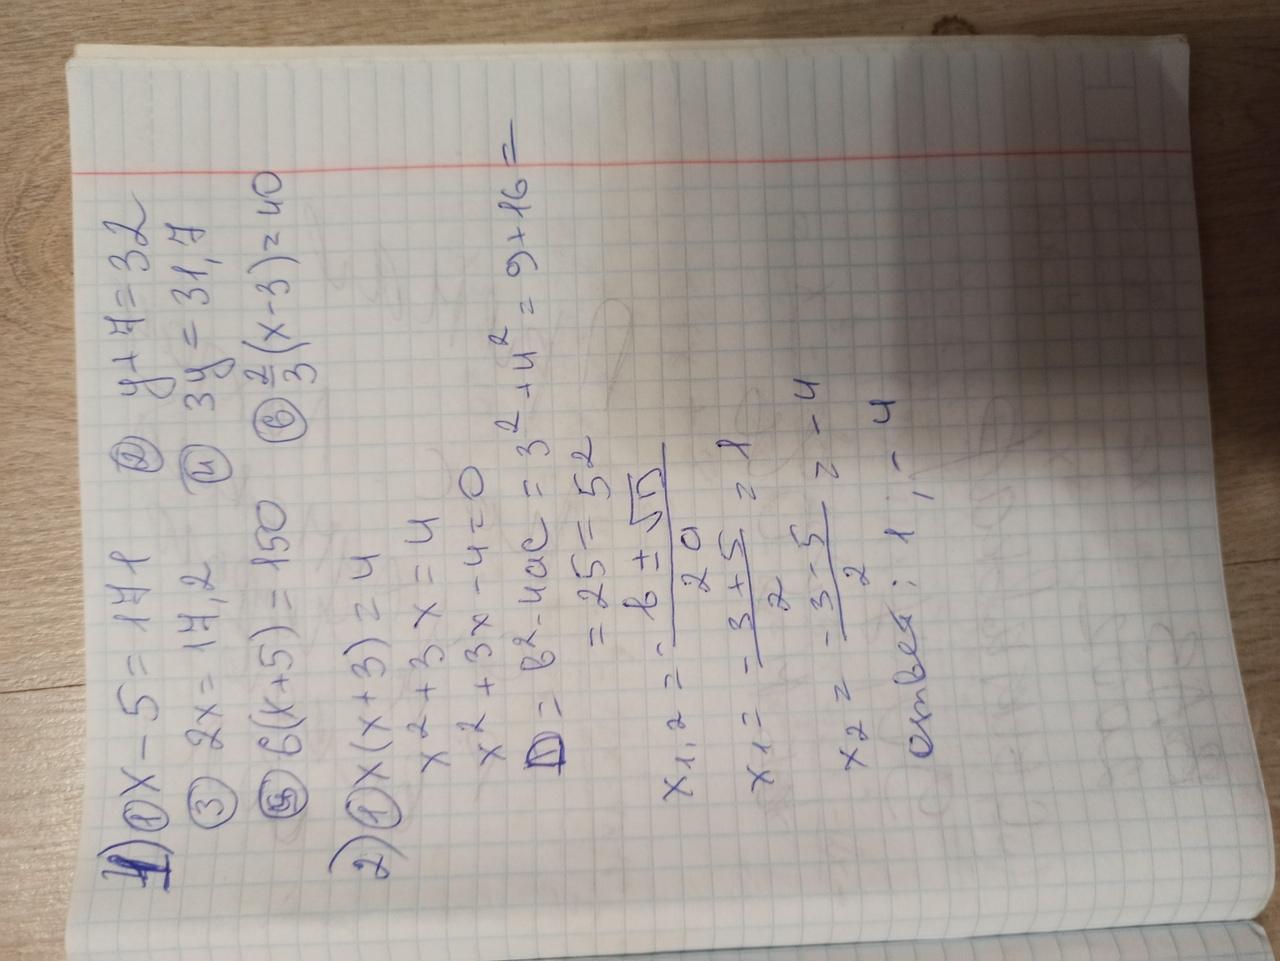 1) ① x - 5 = 171 ② y + 7 = 32
③ 2x = 17,2 ④ 3y = 31,7
⑤ 6(x+5) = 150 ⑥ 2/3 (x-3) = 40
2) ① x(x+3) = 4
x² + 3x = 4
x² + 3x - 4 = 0
D = b² - 4ac = 3² + 4² = 9 + 16 =
= 25 = 5²
x1,2 = -b ± √D / 2a
x1 = -3+5 / 2 = 1
x2 = -3-5 / 2 = -4
Ответ: 1, -4